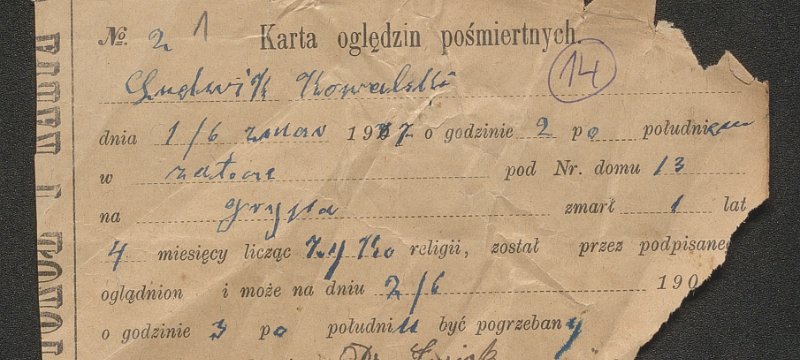 No. 2 1 Karta oględzin pośmiertnych.
Ludwik Kowalski 14
dnia 1/6 1917 o godzinie 2 po południu
w zatorze pod Nr. domu 13
na grypa zmarł 1 lat
4 miesięcy licząc rzyko religii, został przez podpisaneg
oglądnion i może na dniu 2/6 190
o godzinie 3 po południu być pogrzebany
Dr.